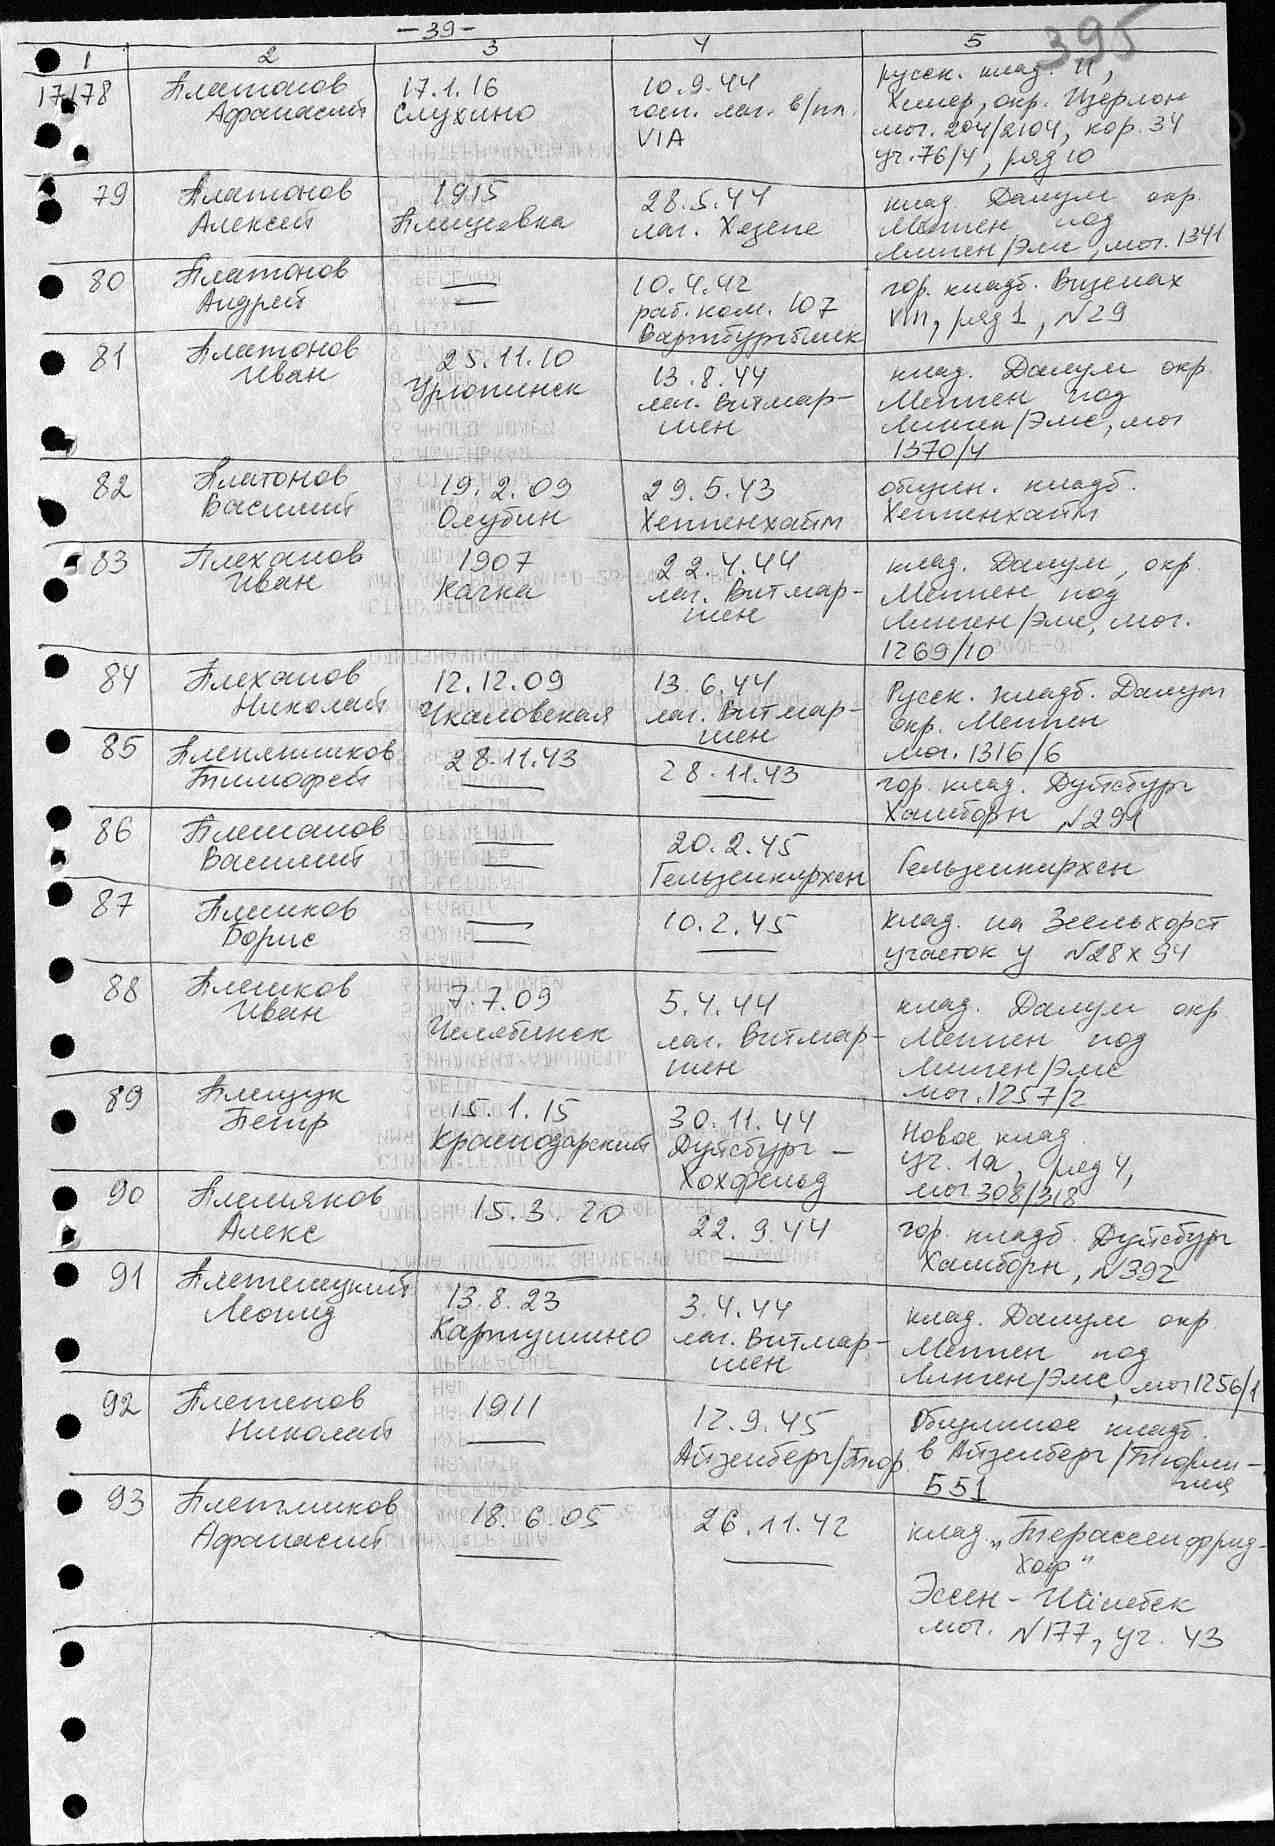 - 39 -
395
1 2 3 4 5
17178 Платонов Афанасий
17.1.16
Слухино
10.9.44
госп. лаг. в/пл.
VIA
русск. клад. II,
Хемер, окр. Изерлон
мог. 204/2104, кор. 34
уч. 76/4, ряд 10
79 Платонов
Алексей
1915
28.5.44
лаг. Хезепе
клад. Далум окр.
Меппен под
Линген/Эмс, мог. 1341
80 Платонов
Андрей
10.4.42
раб. ком. 107
гор. кладб. Виземах
VIII, ряд 1, N29
81 Платонов
Иван
25.11.10
Урюпинск
13.8.44
лаг. Витмар-
шен
клад. Далум окр.
Меппен под
Линген/Эмс, мог
1370/4
82 Платонов
Василий
19.2.09
Олубин
29.5.43
Хеппенхайм
общин. кладб.
Хеппенхайм
83 Плеханов
Иван
1907
Качка
22.4.44
лаг. Витмар-
шен
клад. Далум, окр.
Меппен под
Линген/Эмс, мог.
1269/10
84 Плеханов
Николай
12.12.09
Чкаловская
13.6.44
лаг. Витмар-
шен
Русск. кладб. Далум
окр. Меппен
мог. 1316/6
85
Тимофей
28.11.43
28.11.43
гор. клад. Дуйсбург
Хамборн N291
86 Плешанов
Василий
20.2.45
Гельзенкирхен
Гельзенкирхен
87 Плешков
Борис
10.2.45
клад. на Зеельхорст
участок У N28 х 94
88 Плешков
Иван
7.7.09
Челябинск
5.4.44
лаг. Витмар-
шен
клад. Далум окр.
Меппен под
Линген/Эмс
мог. 1257/2
89 Плещук
Петр
15.1.15
Краснодарский
30.11.44
Дуйсбург -
Хохфельд
Новое клад
уч. 1а, ряд 4,
мог 308/318
90 Племяков
Алекс
15.3.20
22.9.44
гор. кладб. Дуйсбург
Хамборн, N392
91 Плетенецкий
Леонид
13.8.23
Картушино
3.4.44
лаг. Витмар-
шен
клад. Далум окр.
Меппен под
Линген/Эмс, мог 1256/1
92 Плетенов
Николай
1911
12.9.45
Айзенберг/Тюр.
Общинное кладб.
в Айзенберг/Тюрин-
гия
551
93 Плетников
Афанасий
18.6.05
26.11.42
клад. „Терассенфрид-
хоф"
Эссен -
мог. N177, уч. 43